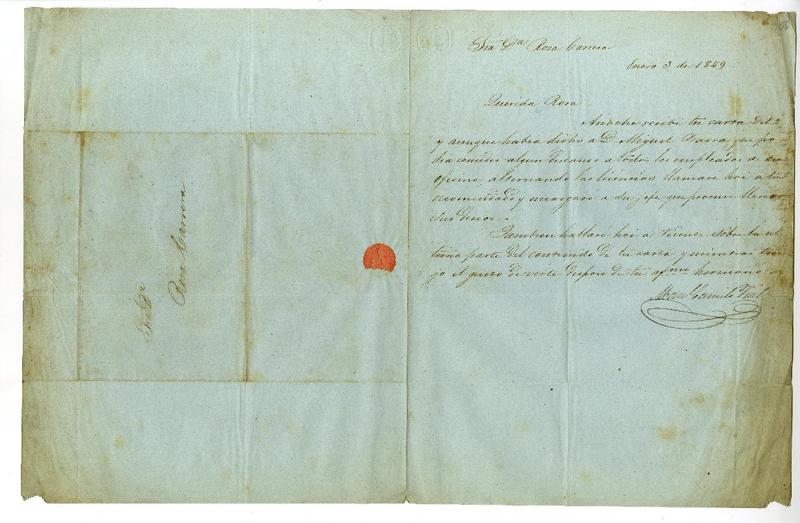 Sra Dª
Rosa Carrera
Sra Dª Rosa Carrera
Enero 3 de 1849
Querida Rosa
Anoche recibí tu carta del 2
y aunque habia dicho a D. Miguel Parra que po-
dia conceder algun descanso a todos los empleados de su
oficina alternando las licencias llamaré hoi a tu
recomendado y encargaré a su jefe que procure llenar
sus deseos.
Tambien hablaré hoi a Vicente sobre la ul-
tima parte del contenido de tu carta y mientras ten-
go el gusto de verte dispon de tu afmo hermano
Manl Camilo Vial